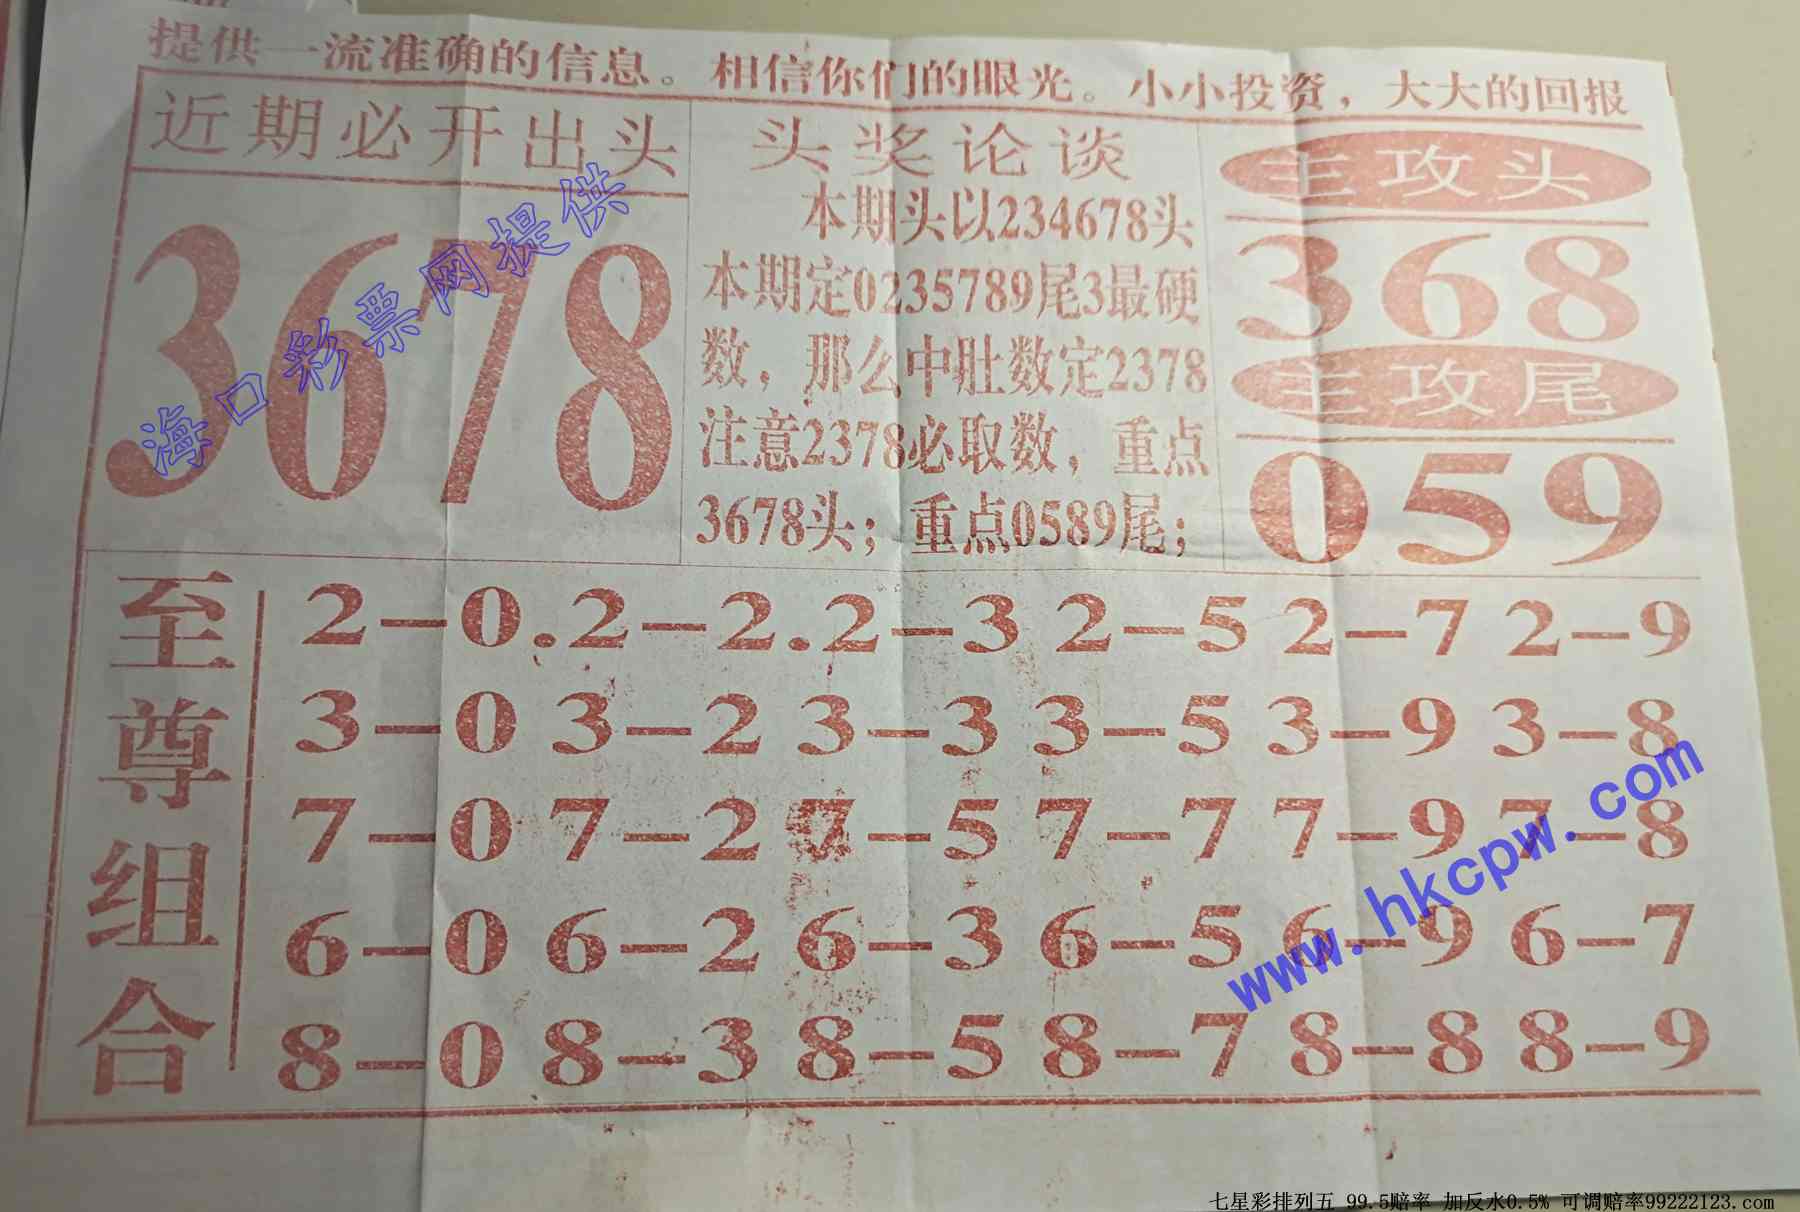 提供一流准确的信息。相信你们的眼光。小小投资，大大的回报
近期必开出头
3678
头奖论谈
本期头以234678头
本期定0235789尾3最硬
数，那么中肚数定2378
注意2378必取数，重点
3678头；重点0589尾；
主攻头
368
主攻尾
059
至尊组合
2-0.2-2.2-3 2-5 2-7 2-9
3-0 3-2 3-3 3-5 3-9 3-8
7-0 7-2 7-5 7-7 7-9 7-8
6-0 6-2 6-3 6-5 6-9 6-7
8-0 8-3 8-5 8-7 8-8 8-9
海口彩票网提供
www.hkcpw.com
七星彩排列五 99.5赔率 加反水0.5% 可调赔率99222123.com